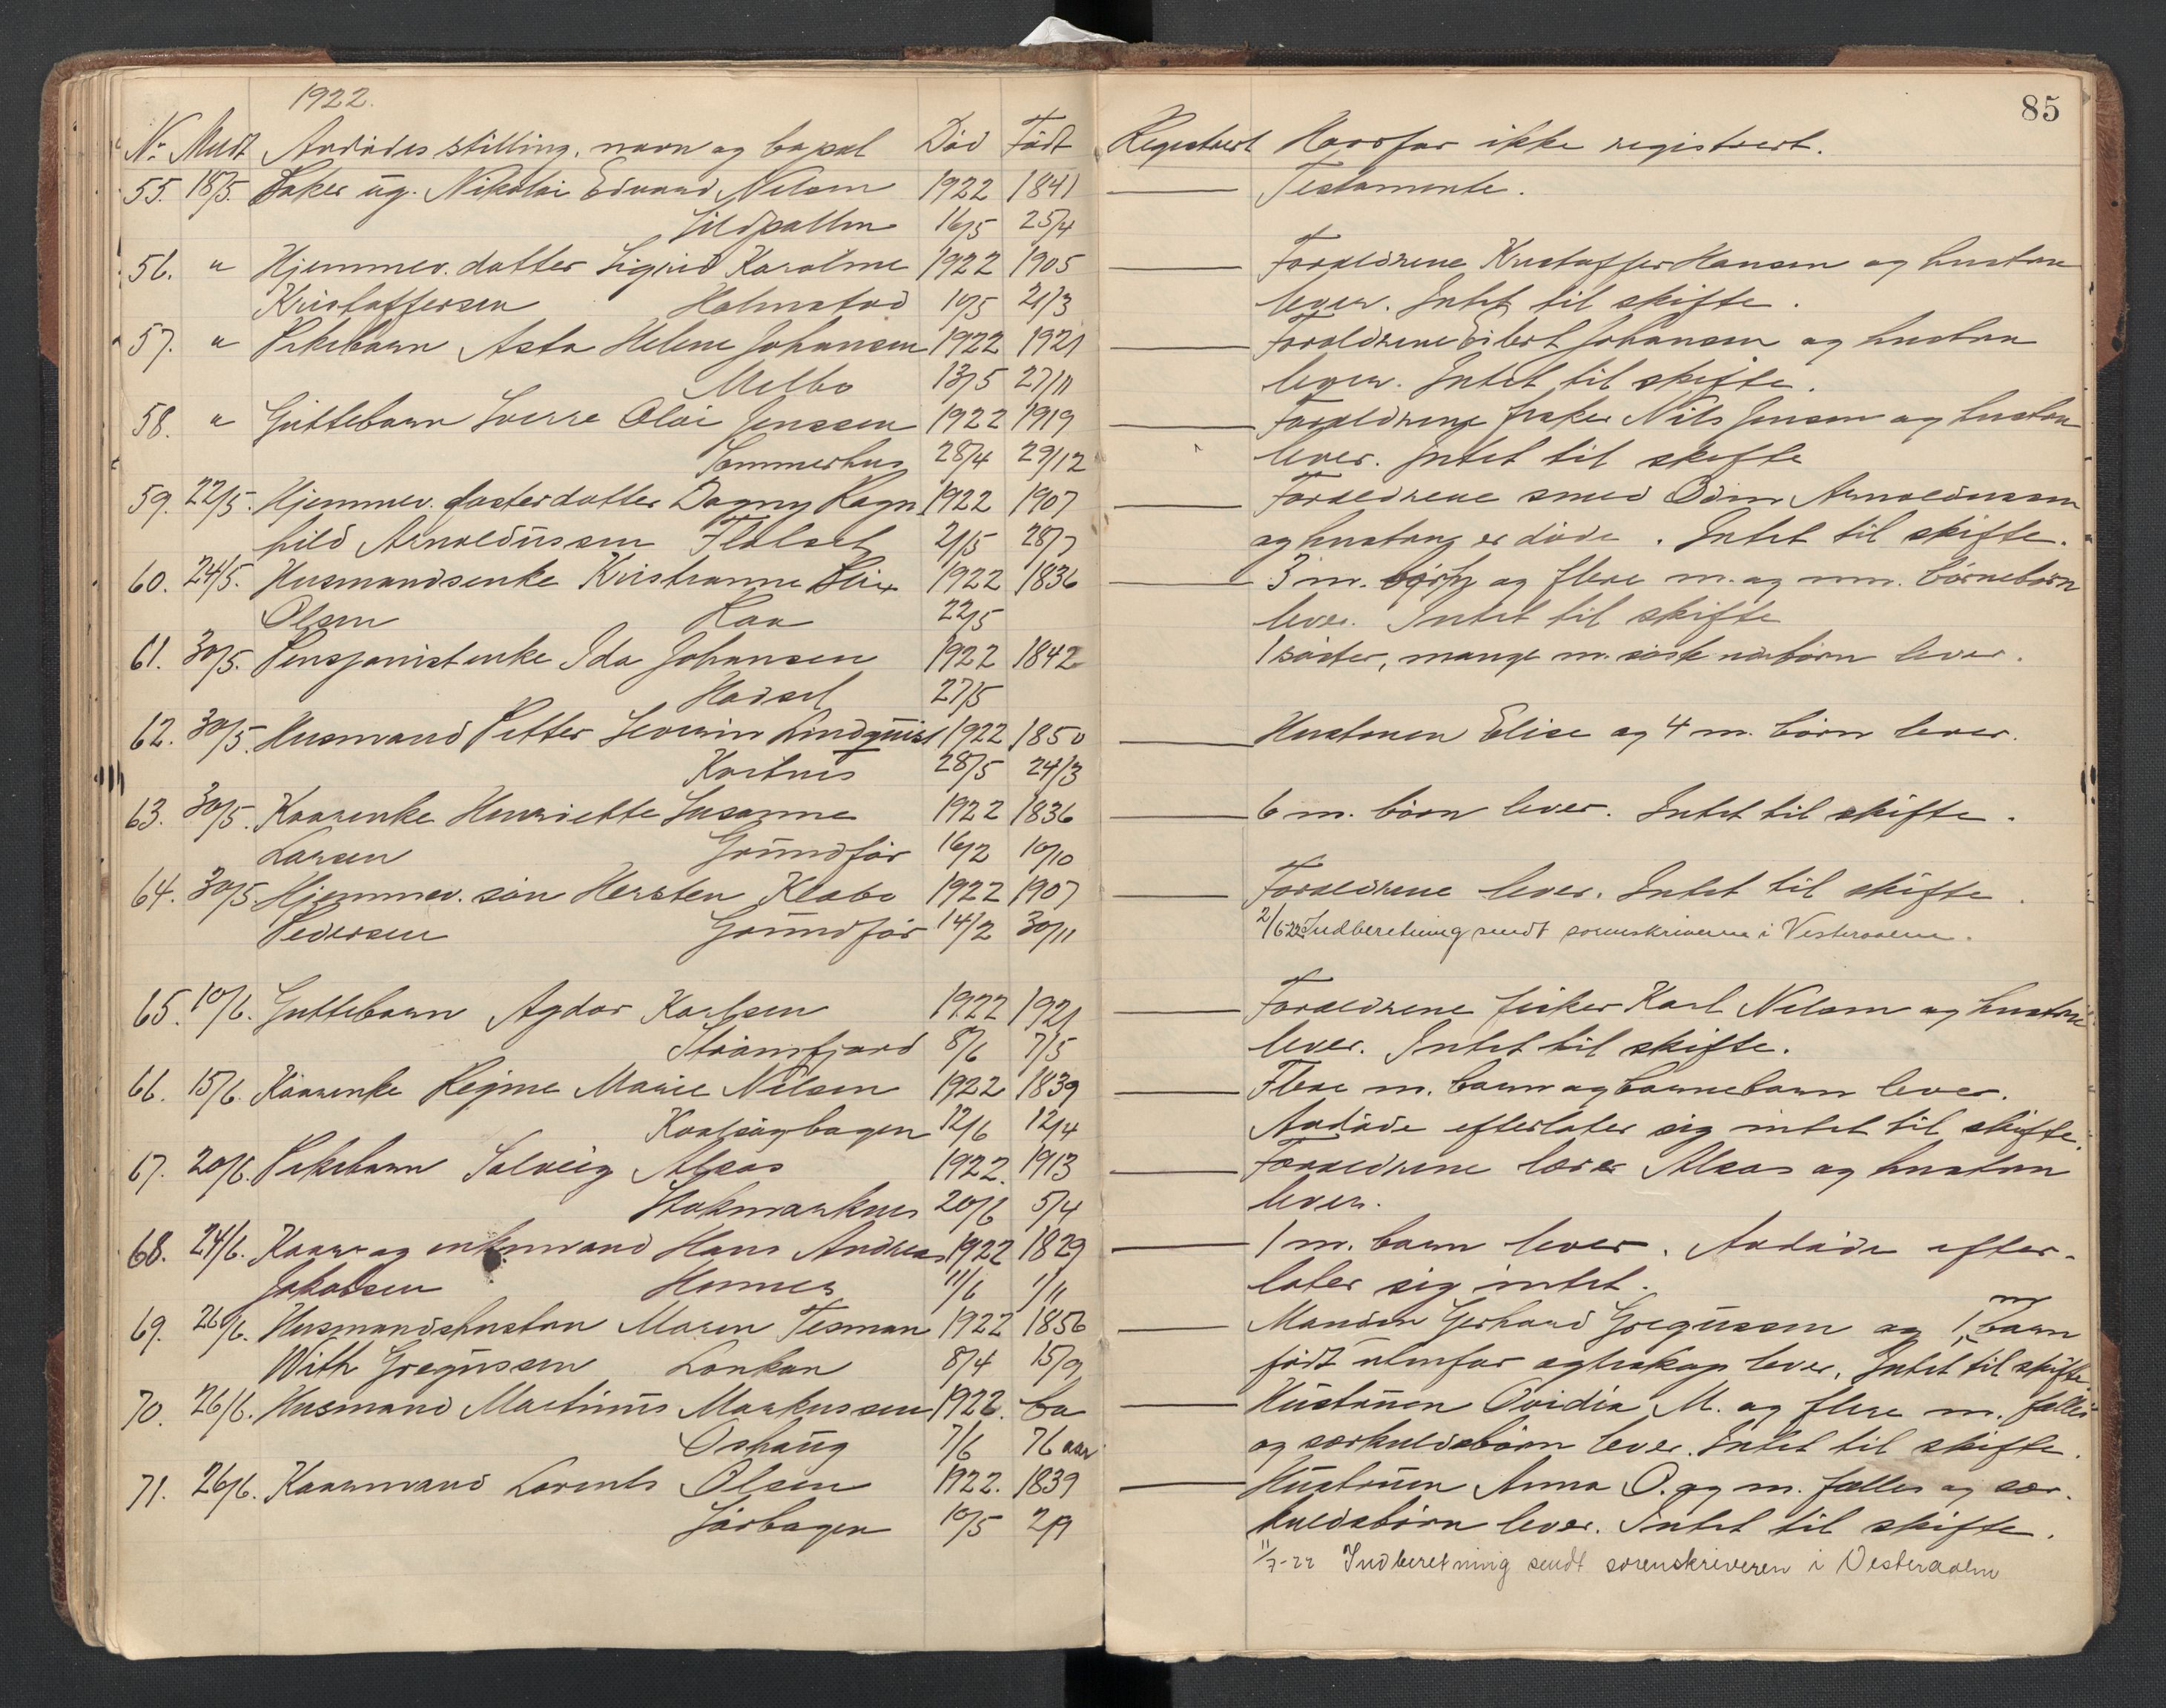 1922.
85
Nr. Meldt Avdødes stilling, navn og bopæl Død Født Registrert Hvorfor ikke registrert.
55. 18/5. Fisker ug. Nikolai Edvard Nilsen 1922 1841 Testamente.
Sildpollen 16/5 25/4
56. " Hjemmev. datter Sigrid Karoline 1922 1905 Forældrene Kristoffer Hansen og hustru
Kristoffersen Holmstad 10/5 21/3 lever. Intet til skifte.
57. " Pikebarn Asta Helene Johansen 1922 1921 Forældrene Eilert Johansen og hustru
Melbo 13/5 27/11 lever. Intet til skifte.
58. " Guttebarn Sverre Olai Jenssen 1922 1919 Forældrene fisker Nils Jensen og hustru
Sommerhus 28/4 29/12 lever. Intet til skifte
59. 22/5. Hjemmev. fosterdatter Dagny Ragn 1922 1907 Forældrene smed Odin Arnoldussen
hild Arnoldussen 2/5 28/7 og hustru er døde. Intet til skifte.
60. 24/5. Husmandsenke Kristianne 1922 1836 3 m. børn og flere m. og um. børnebørn
Olsen Raa 22/5 lever. Intet til skifte
61. 30/5. Pensjonistenke Ida Johansen 1922 1842 1 søster, mange m. søskendebørn lever.
Hadsel 27/5
62. 30/5. Husmand Petter Severin Lindquist 1922 1850 Hustruen Elise og 4 m. børn lever.
Kortnes 28/5 24/3
63. 30/5. Kaarenke Henriette Susanne 1922 1836 6 m. børn lever. Intet til skifte.
Larsen Grundfør 16/2 10/10
64. 30/5. Hjemmev. søn Hersten Klabo 1922 1907 Forældrene lever. Intet til skifte.
Pedersen Grundfør 14/2 30/11 2/6 22 Indberetning sendt sorenskriveren i Vesteraalen.
65. 10/6. Guttebarn Agdor Karlsen 1922 1921 Forældrene fisker Karl Nilsen og hustru
Straumfjord 8/6 7/5 lever. Intet til skifte.
66. 15/6. Kaarenke Regine Marie Nilsen 1922 1839 Flere m. barn og barnebarn lever.
Kvalsaugbogen 12/6 12/4 Avdøde efterlater sig intet til skifte.
67. 20/6. Pikebarn Solveig Alsos 1922. 1913 Forældrene lærer Alsos og hustru
Stokmarknes 20/6 5/4 lever.
68. 24/6. Kaar- og enkemand Hans Andreas 1922 1829 1 m. barn lever. Avdøde efter-
Jakobsen Hennes 11/6 1/11 later sig intet.
69. 26/6. Husmandshustru Maren Tesman 1922 1856 Manden Gerhard Gregussen og 1 m barn
With Gregussen Lonkan 8/4 15/9 født utenfor egteskap lever. Intet til skifte.
70. 26/6. Husmand Martinus Markussen 1922. Ca Hustruen Ovidia M. og flere m. fælles
Oshaug 7/6 76 aar og særkuldsbørn lever. Intet til skifte.
71. 26/6. Kaarmand Lorents Olsen 1922. 1839 Hustruen Anna O. og m. fælles og sær-
Sørbogen 10/5 2/9 kuldsbørn lever. Intet til skifte.
11/7-22 Indberetning sendt sorenskriveren i Vesteraalen